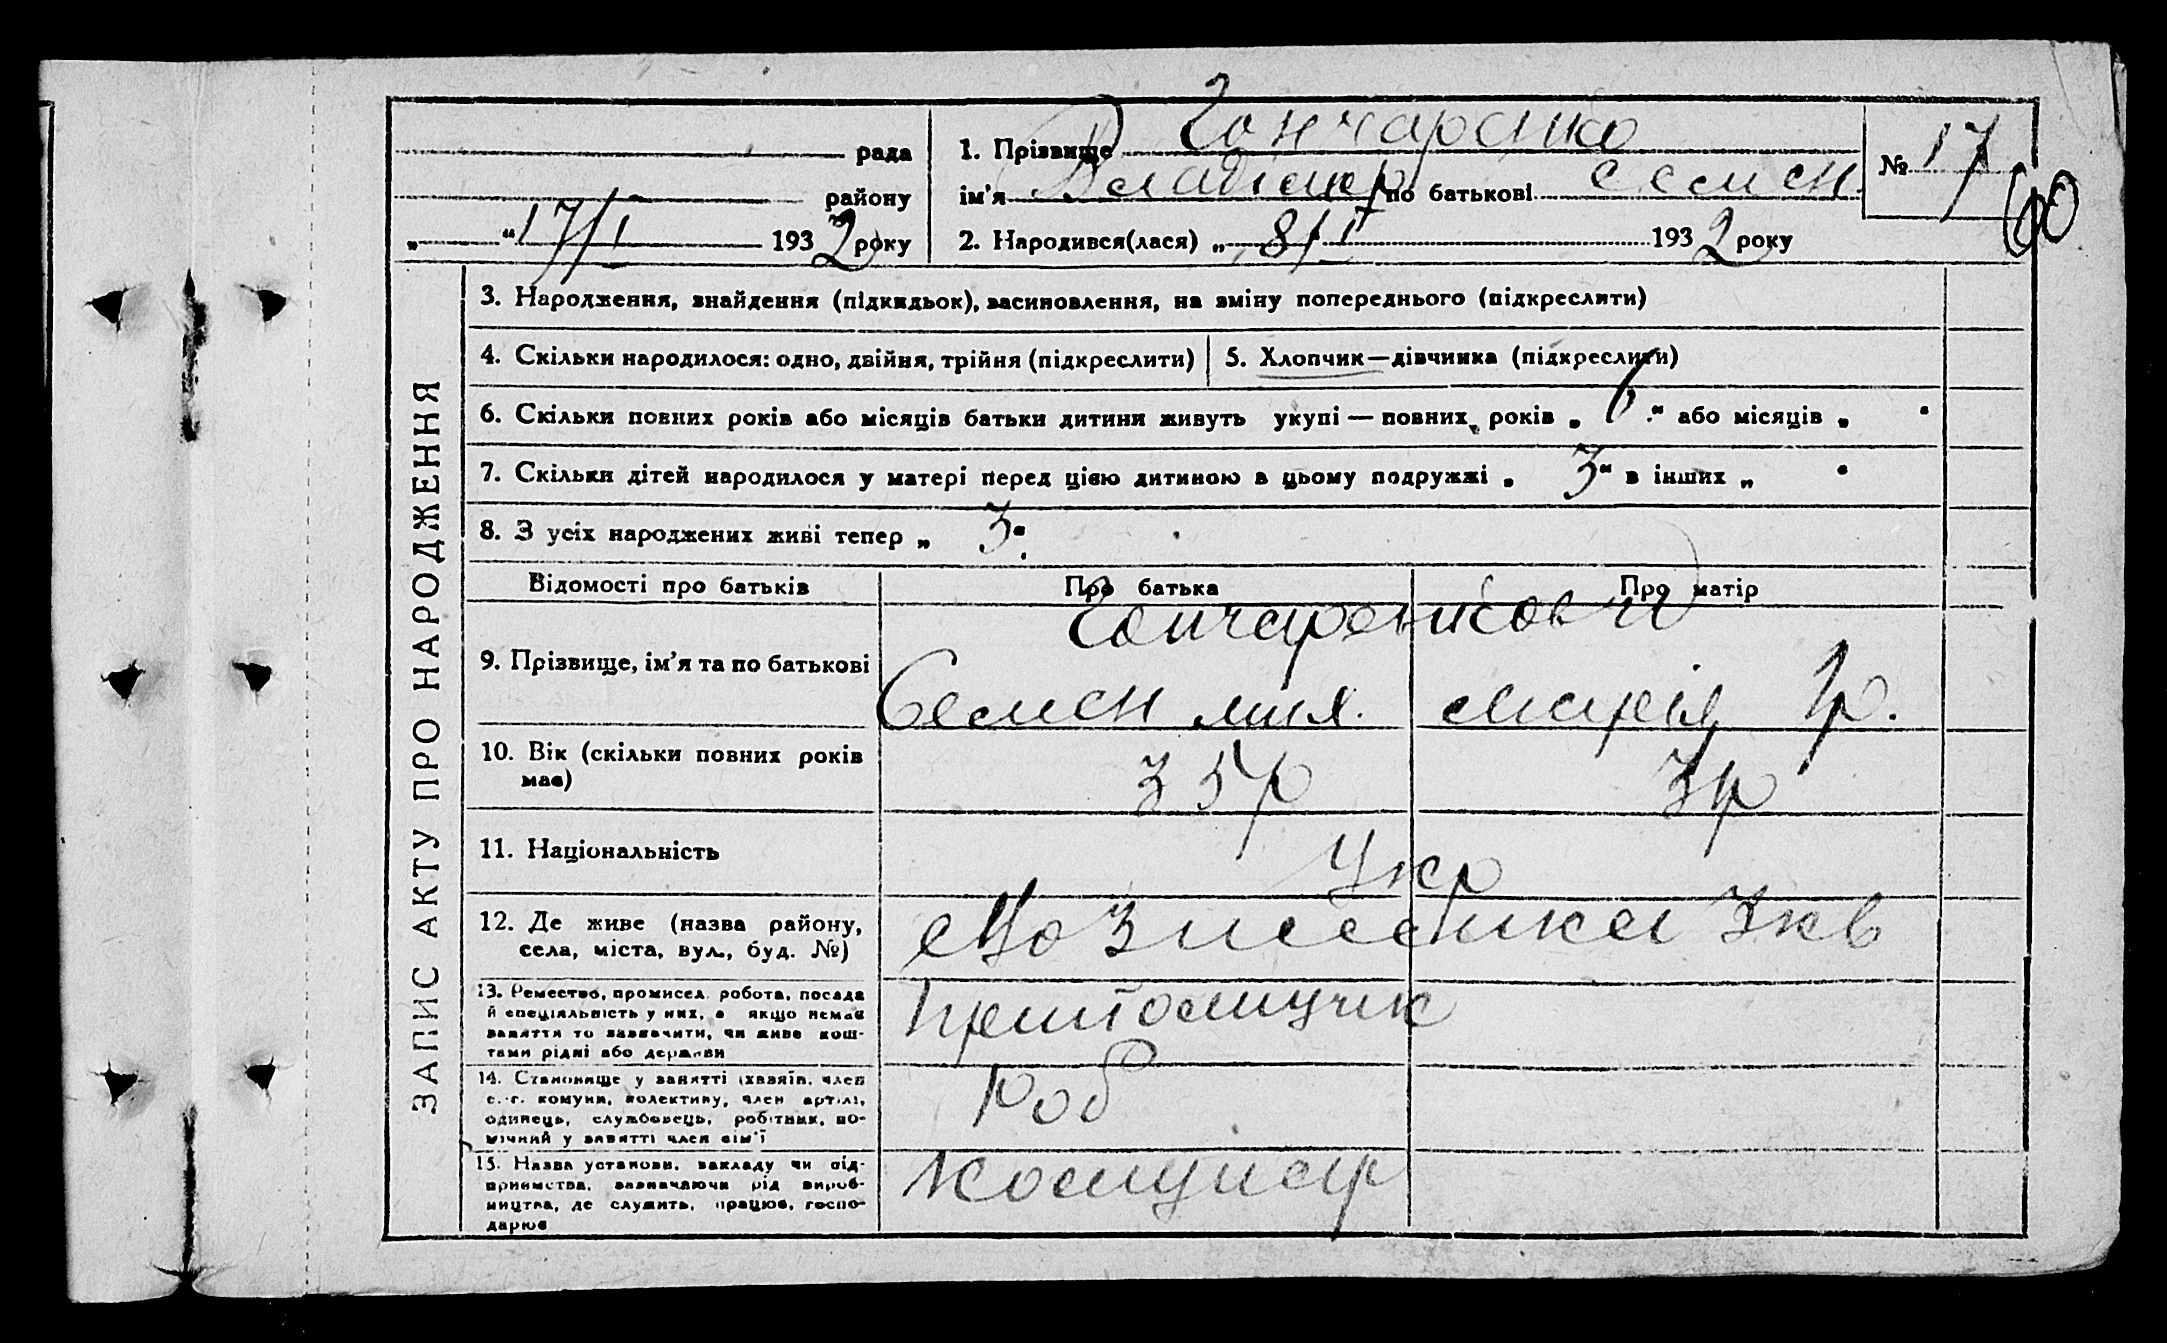 рада
району
„ “ 17/I 1932 року
1. Прізвище Гончаренко
ім'я Владімір по батькові Семен
2. Народився(лася) „ 8/I 1932 року
№ 17
60
ЗАПИС АКТУ ПРО НАРОДЖЕННЯ
3. Народження, знайдення (підкидьок), засиновлення, на зміну попереднього (підкреслити)
4. Скільки народилося: одно, двійня, трійня (підкреслити)
5. Хлопчик—дівчинка (підкреслити)
6. Скільки повних років або місяців батьки дитини живуть укупі — повних років „ 6 “ або місяців „
7. Скільки дітей народилося у матері перед цією дитиною в цьому подружжі „ 3 “ в інших „
8. З усіх народжених живі тепер „ 3 “
Відомості про батьків
Про батька
Про матір
Гончаренкови
9. Прізвище, ім'я та по батькові
Семен мих.
Марія Гр.
10. Вік (скільки повних років
має)
35р
11. Національність
Укр
12. Де живе (назва району,
села, міста, вул., буд. №)
13. Ремество, промисел, робота, посада
й спеціяльність у них, а якщо немає
заняття то зазначити, чи живе кош-
тами рідні або держави
14. Становище у занятті (хазяїн, член
с.-г. комуни, колективу, член артілі,
одинець, службовець, робітник, по-
мічний у занятті член сім'ї
Роб
15. Назва установи, закладу чи під-
приємства, зазначаючи рід вироб-
ництва, де служить, працює, госпо-
дарює